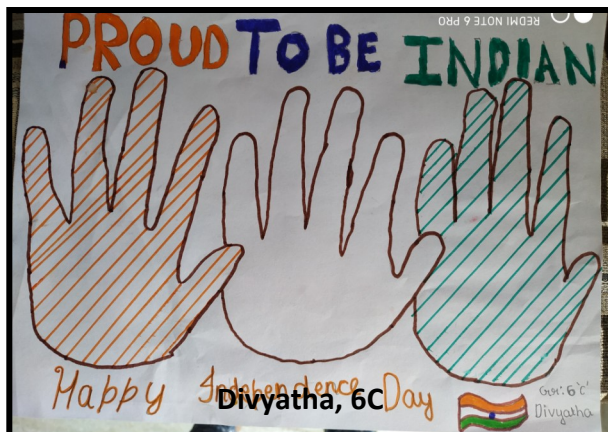 REDMI NOTE 6 PRO
PROUD TO BE INDIAN
Happy Independence Day
Divyatha, 6C
Gr: 6 'C'
Divyatha